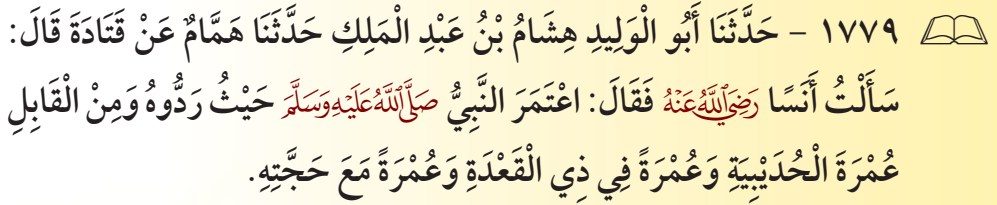 ١٧٧٩ - حَدَّثَنَا أَبُو الْوَلِيدِ هِشَامُ بْنُ عَبْدِ الْمَلِكِ حَدَّثَنَا هَمَّامٌ عَنْ قَتَادَةَ قَالَ:
سَأَلْتُ أَنَسًا رَضِيَ اللَّهُ عَنْهُ فَقَالَ: اعْتَمَرَ النَّبِيُّ صَلَّى اللَّهُ عَلَيْهِ وَسَلَّمَ حَيْثُ رَدُّوهُ وَمِنْ الْقَابِلِ
عُمْرَةَ الْحُدَيْبِيَةِ وَعُمْرَةً فِي ذِي الْقَعْدَةِ وَعُمْرَةً مَعَ حَجَّتِهِ.